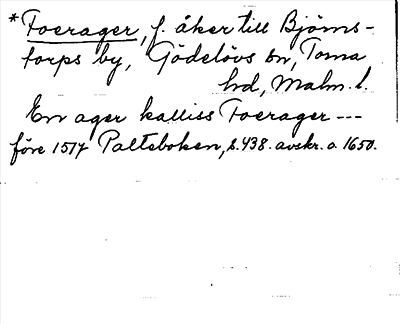 *Foerager, f. åker till Björns-
torps by, Gödelövs sn, Torna
hd, Malm. l.
En ager kalliss Foerager ---
före 1517 Palteboken, s. 438. avskr. o 1650.